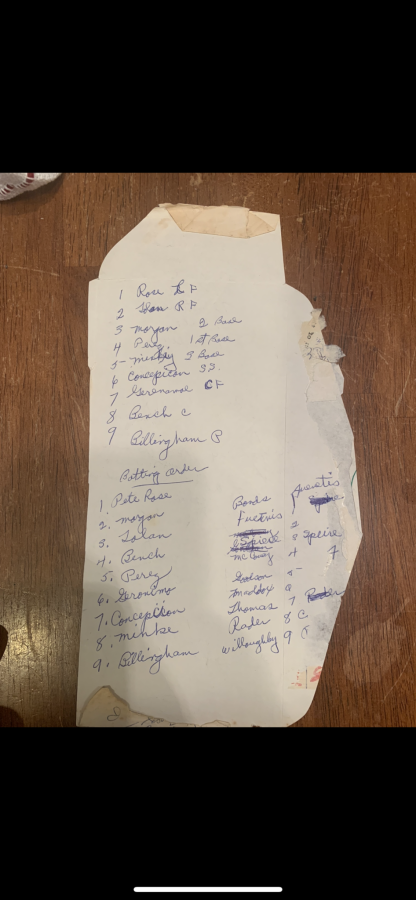 1 Rose L F
2 Tolan R F
3 Morgan 2 Base
4 Perez 1 st Base
5- Minkey 3 Base
6 Concepcion S.S.
7 Geronimoe CF
8 Bench C
9 Billingham P
Batting Order
1. Pete Rose
2. Morgan
3. Tolan
4. Bench
5. Perez
6. Geronimo
7. Concepcion
8. Minke
9. Billingham
Bonds 1
Fuentis 2
3 Speire
McCovey 4
5-
Maddox 6
Thomas 7
Rader 8 C
Willoughby 9